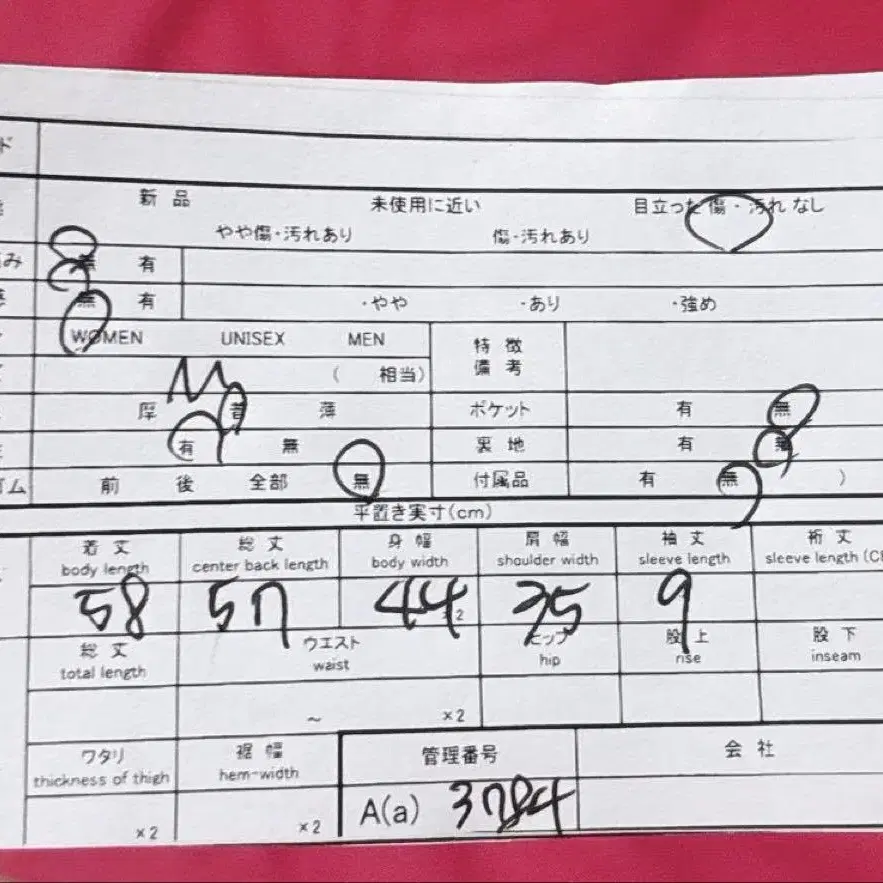 ド
新品 未使用に近い 目立った傷・汚れなし
やや傷・汚れあり 傷・汚れあり
み 無 有
無 有 ・やや ・あり ・強め
WOMEN UNISEX MEN 特徴
備考
M ( 相当)
厚 普 薄 ポケット 有 無
有 無 裏地 有 無
ゴム 前 後 全部 無 付属品 有 無 )
平置き実寸(cm)
着丈 総丈 身幅 肩幅 袖丈 裄丈
body length center back length body width shoulder width sleeve length sleeve length (C
58 57 44 ×2 35 9
総丈 ウエスト ヒップ 股上 股下
total length waist hip rise inseam
~ ×2
ワタリ 裾幅 管理番号 会社
thickness of thigh hem-width
×2 ×2 A(a) 3784